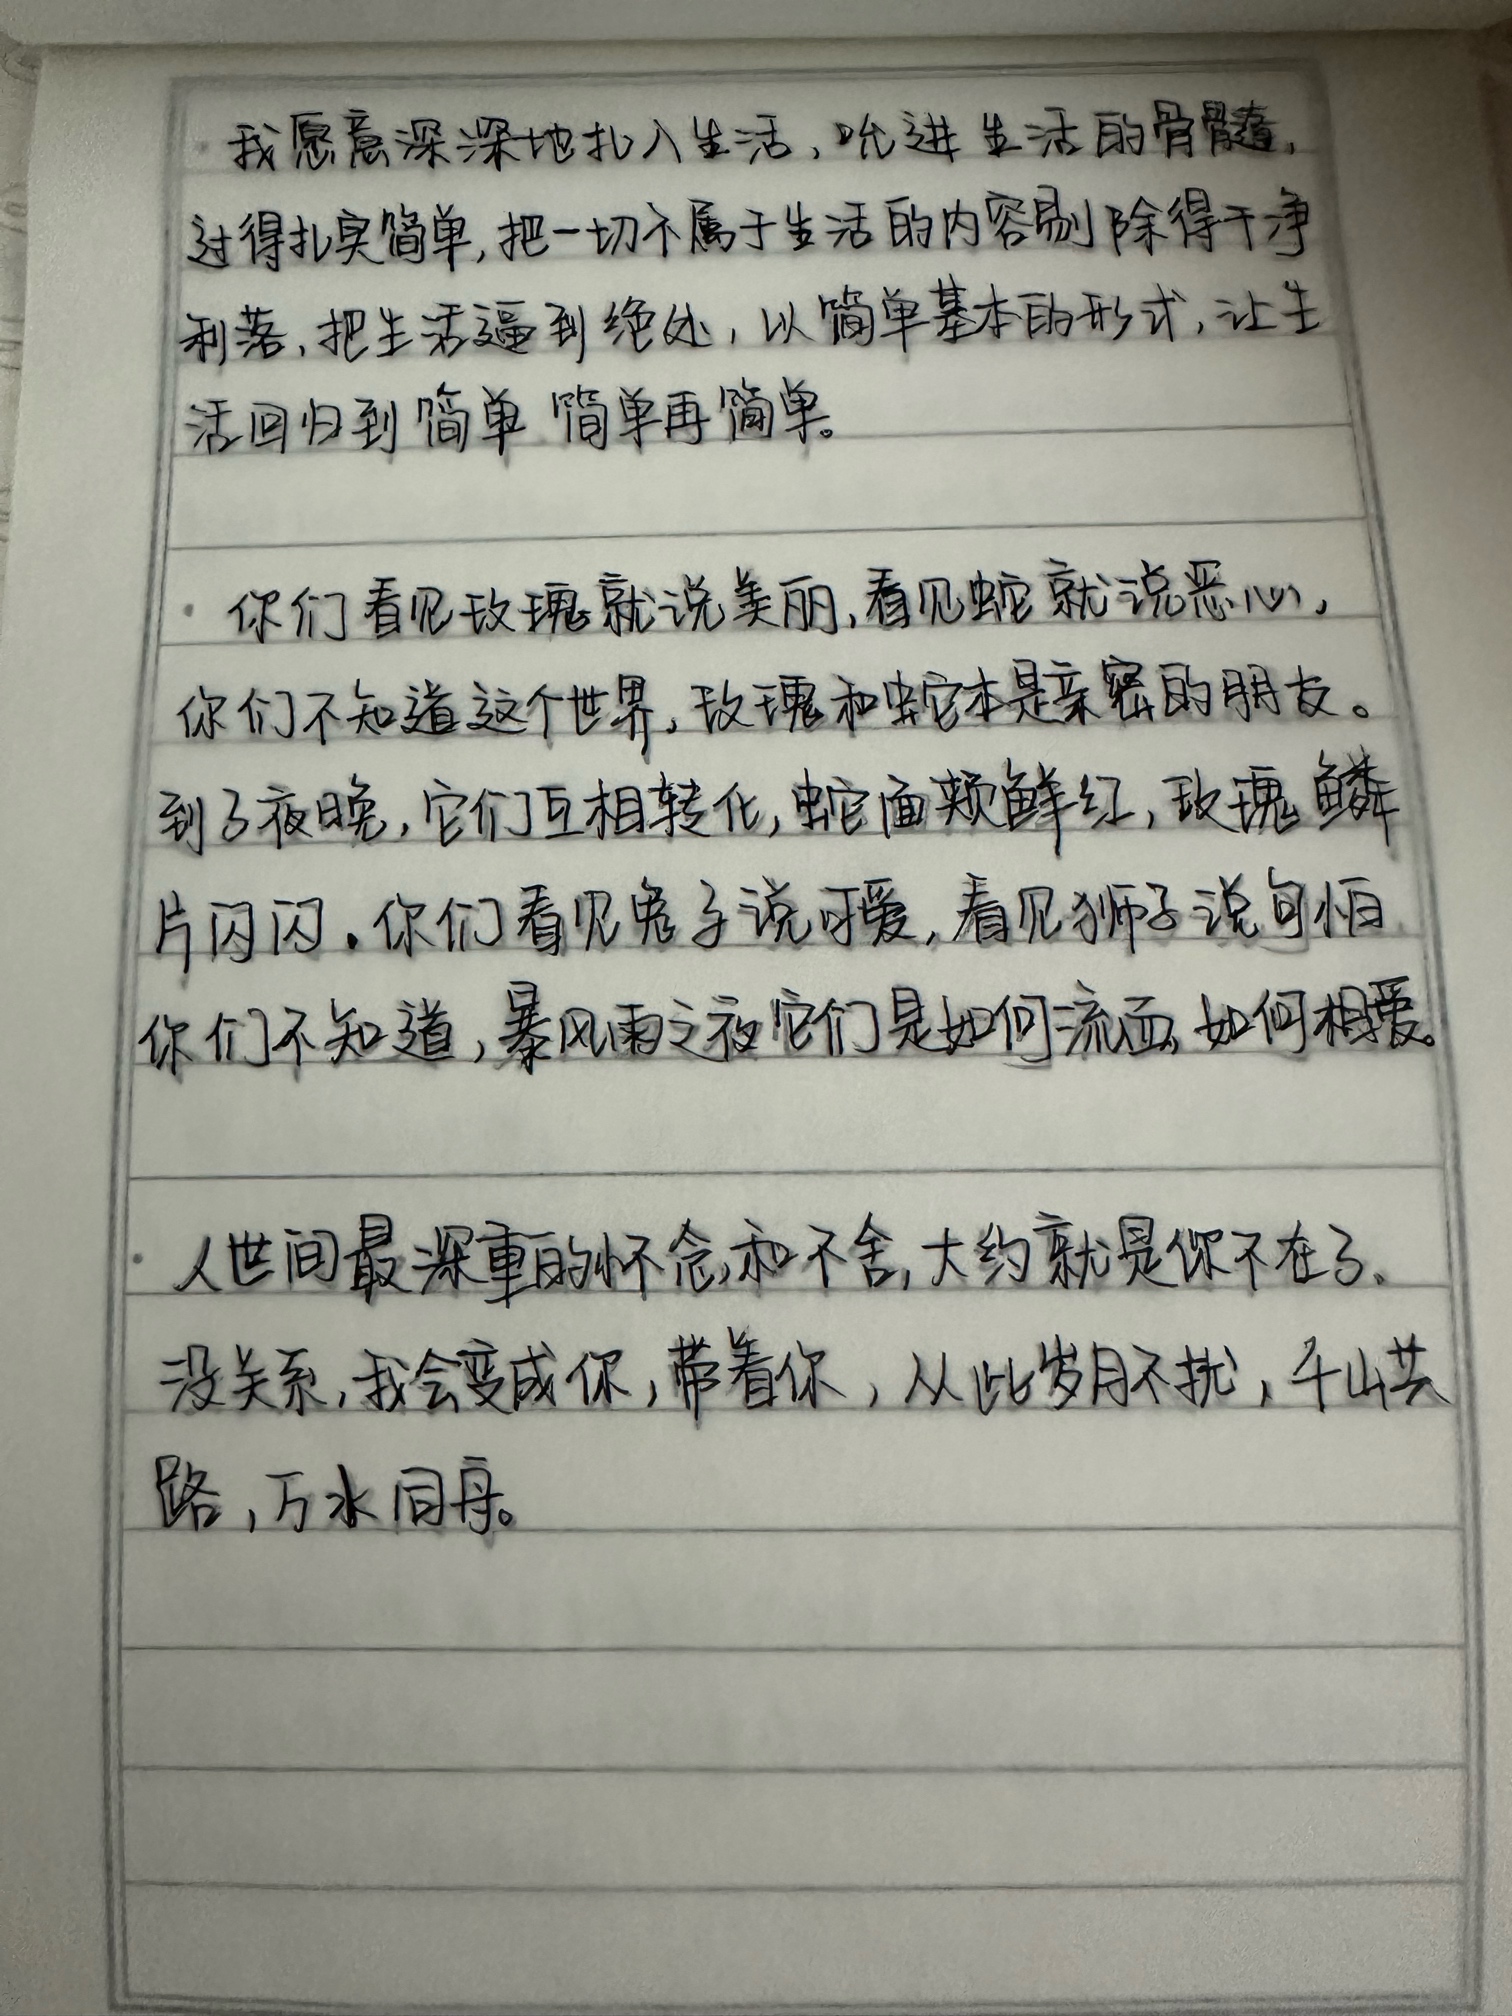 ·我愿意深深地扎入生活,吮进生活的骨髓,
过得扎实简单,把一切不属于生活的内容剔除得干净
利落,把生活逼到绝处,以简单基本的形式,让生
活回归到简单 简单再简单。
·你们看见玫瑰就说美丽,看见蛇就说恶心,
你们不知道这个世界,玫瑰和蛇本是亲密的朋友。
到了夜晚,它们互相转化,蛇面颊鲜红,玫瑰鳞
片闪闪。你们看见兔子说可爱,看见狮子说可怕
你们不知道,暴风雨之夜它们是如何流血,如何相爱。
·人世间最深重的怀念,和不舍,大约就是你不在了、
没关系,我会变成你,带着你,从此岁月不扰,千山共
路,万水同舟。